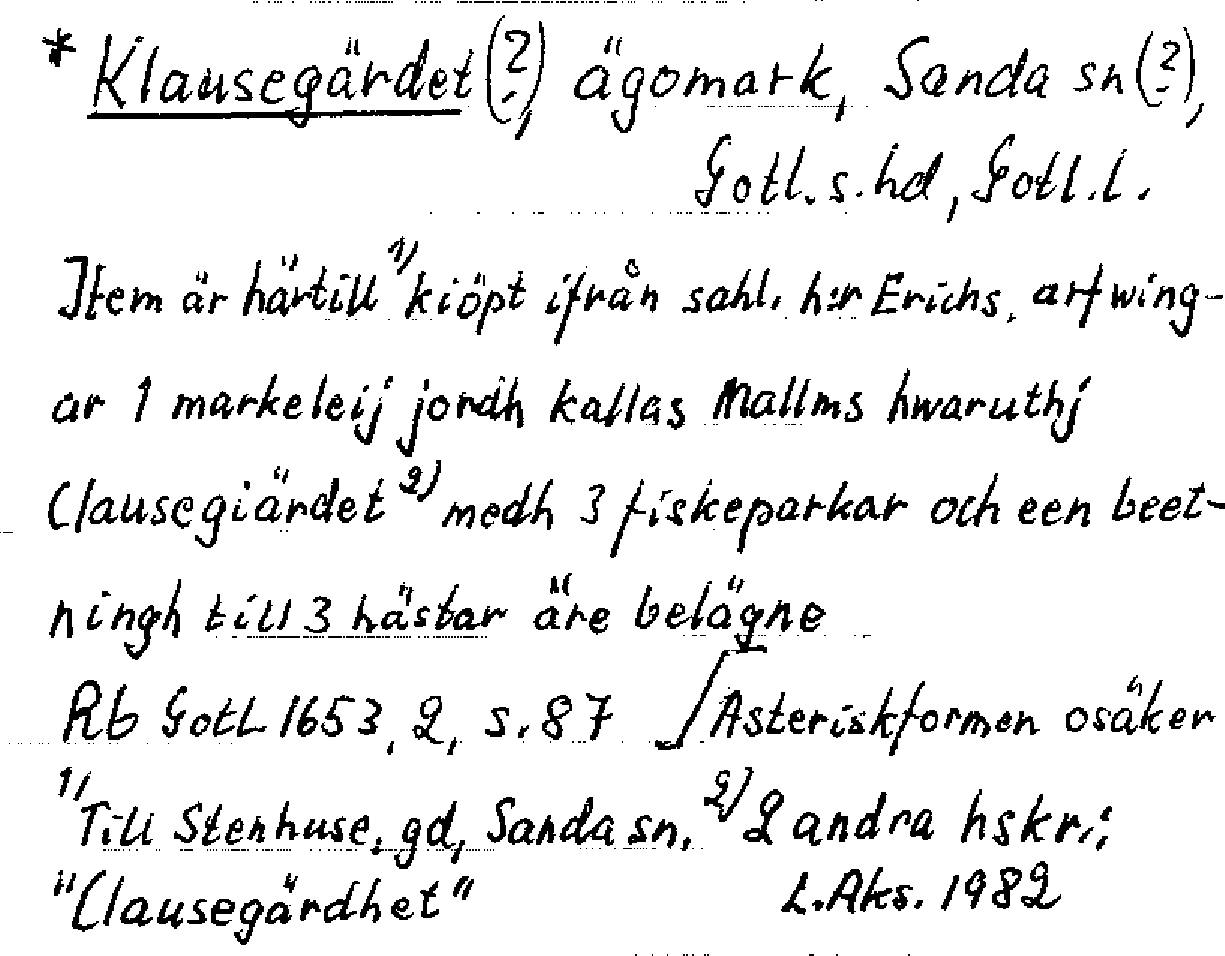 * Klausegärdet (?), ägomark, Sanda sn (?),
Gotl. s. hd, Gotl. l.
Item är härtill 1) kiöpt ifrån sahl. h:r Erichs. arfwing-
ar 1 markeleij jordh kallas Mallms hwaruthj
Clausegiärdet 2) medh 3 fiskeparkar och een beet-
ningh till 3 hästar äre belägne
Rb Gotl 1653, 2, s. 87 [Asteriskformen osäker
1) Till Stenhuse, gd, Sanda sn. 2) 2 andra hskr.:
"Clausegärdhet" L. Aks. 1982